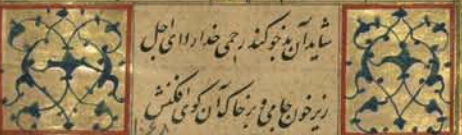 شاید آن بدخو کند رحمی خدا را ای اجل
زیر خون جامی و بر خاک آن کوی افکنش